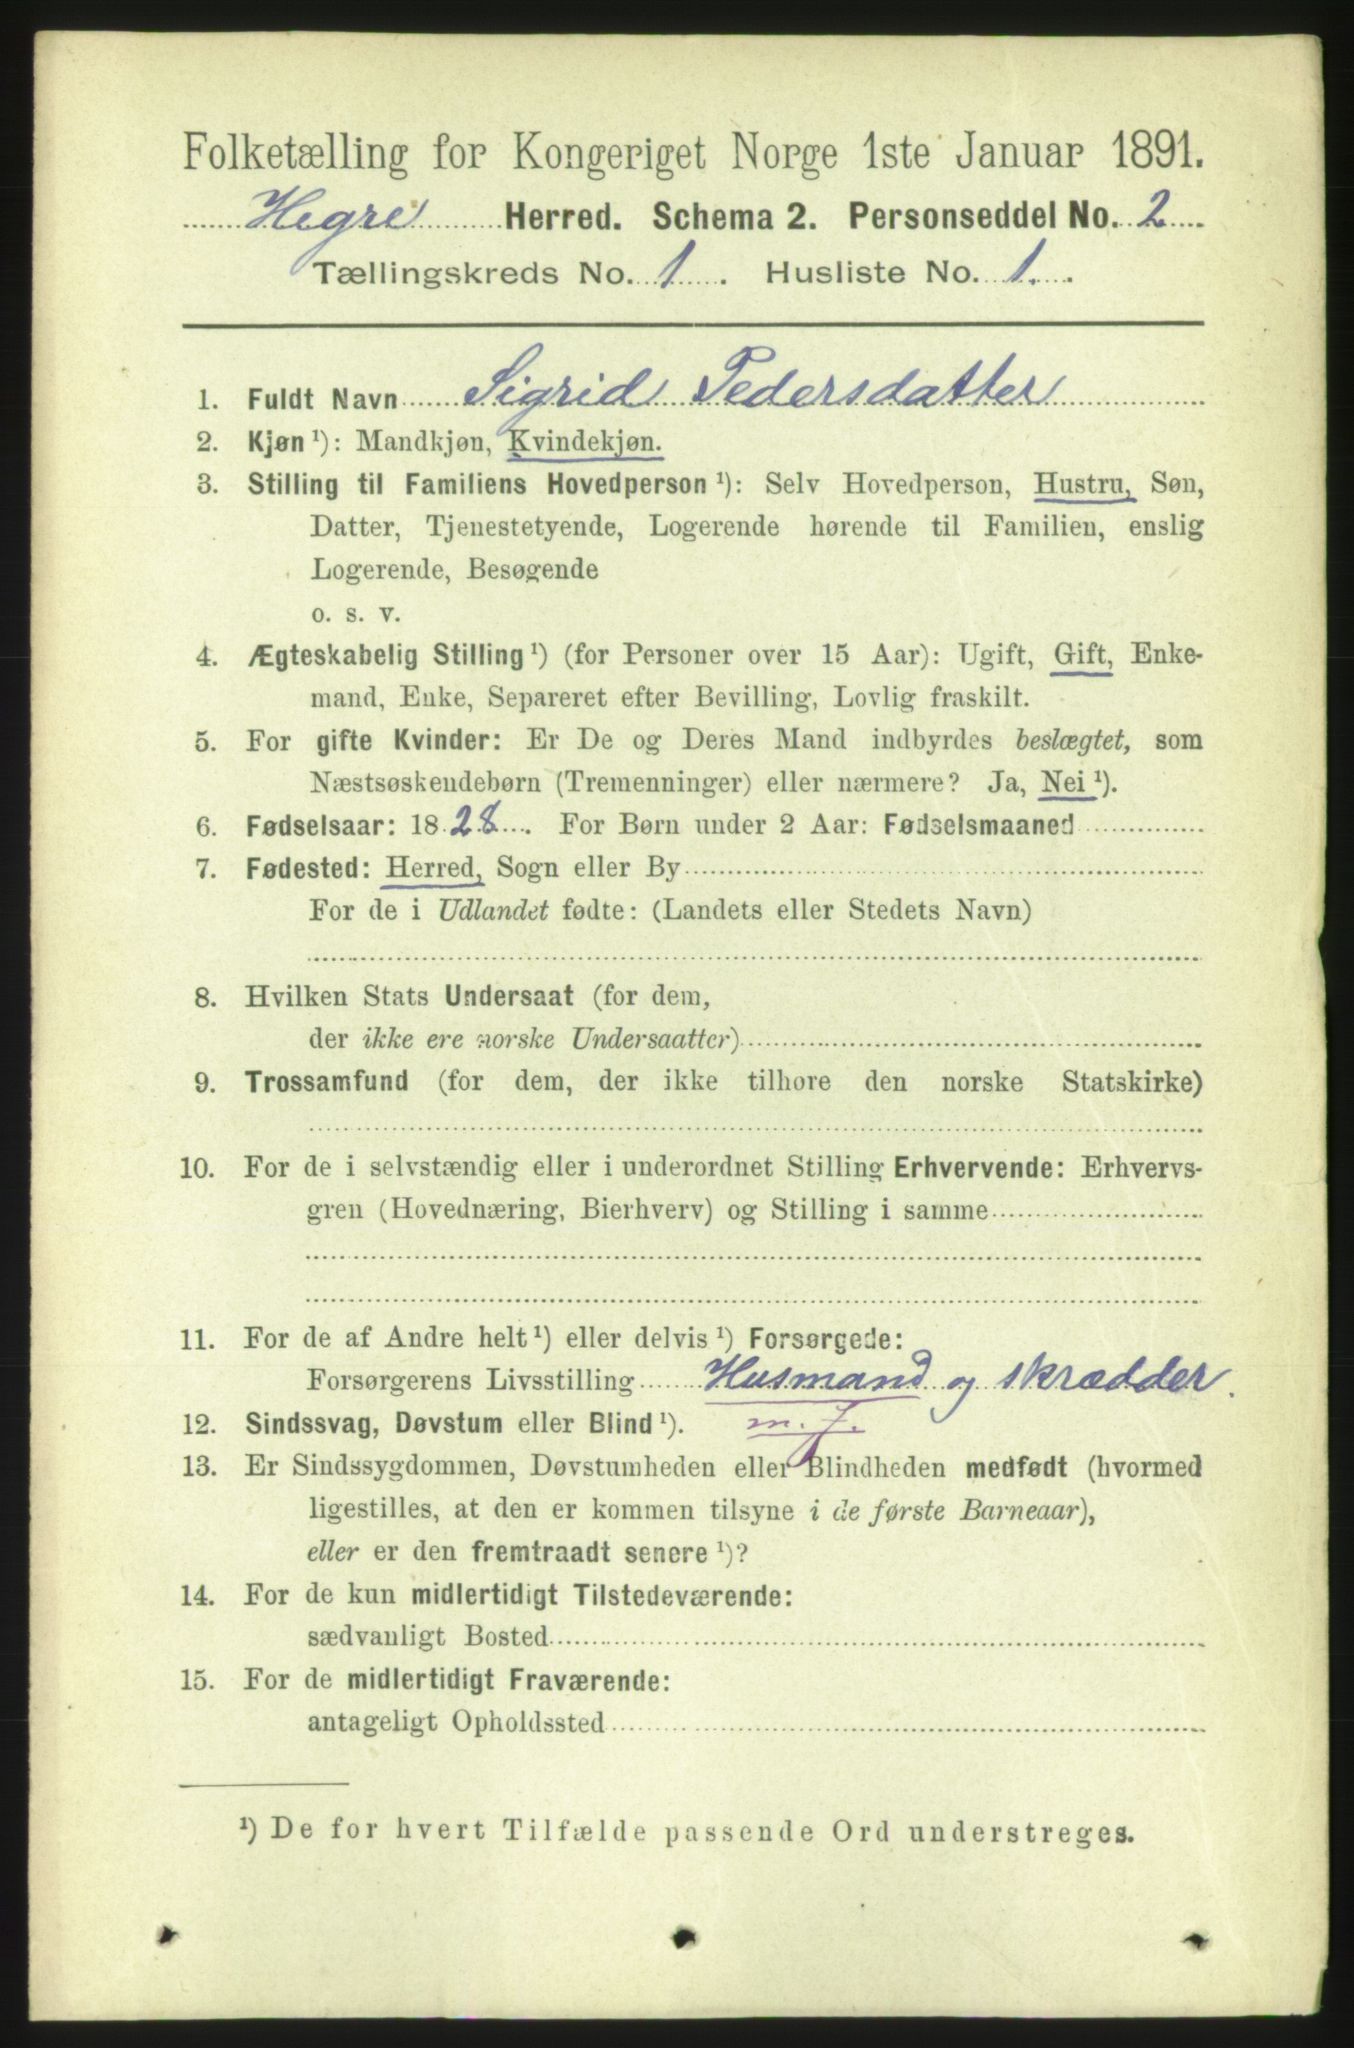 Folketælling for Kongeriget Norge 1ste Januar 1891.
Hegre Herred. Schema 2. Personseddel No. 2
Tællingskreds No. 1. Husliste No. 1.
1. Fuldt Navn Sigrid Pedersdatter
2. Kjøn ¹): Mandkjøn, Kvindekjøn.
3. Stilling til Familiens Hovedperson ¹): Selv Hovedperson, Hustru, Søn,
Datter, Tjenestetyende, Logerende hørende til Familien, enslig
Logerende, Besøgende
o. s. v.
4. Ægteskabelig Stilling ¹) (for Personer over 15 Aar): Ugift, Gift, Enke-
mand, Enke, Separeret efter Bevilling, Lovlig fraskilt.
5. For gifte Kvinder: Er De og Deres Mand indbyrdes beslægtet, som
Næstsøskendebørn (Tremenninger) eller nærmere? Ja, Nei ¹).
6. Fødselsaar: 1828. For Børn under 2 Aar: Fødselsmaaned
7. Fødested: Herred, Sogn eller By
For de i Udlandet fødte: (Landets eller Stedets Navn)
8. Hvilken Stats Undersaat (for dem,
der ikke ere norske Undersaatter)
9. Trossamfund (for dem, der ikke tilhøre den norske Statskirke)
10. For de i selvstændig eller i underordnet Stilling Erhvervende: Erhvervs-
gren (Hovednæring, Bierhverv) og Stilling i samme
11. For de af Andre helt ¹) eller delvis ¹) Forsørgede:
Forsørgerens Livsstilling Husmand og skrædder.
m. J.
12. Sindssvag, Døvstum eller Blind ¹).
13. Er Sindssygdommen, Døvstumheden eller Blindheden medfødt (hvormed
ligestilles, at den er kommen tilsyne i de første Barneaar),
eller er den fremtraadt senere ¹)?
14. For de kun midlertidigt Tilstedeværende:
sædvanligt Bosted
15. For de midlertidigt Fraværende:
antageligt Opholdssted
¹) De for hvert Tilfælde passende Ord understreges.